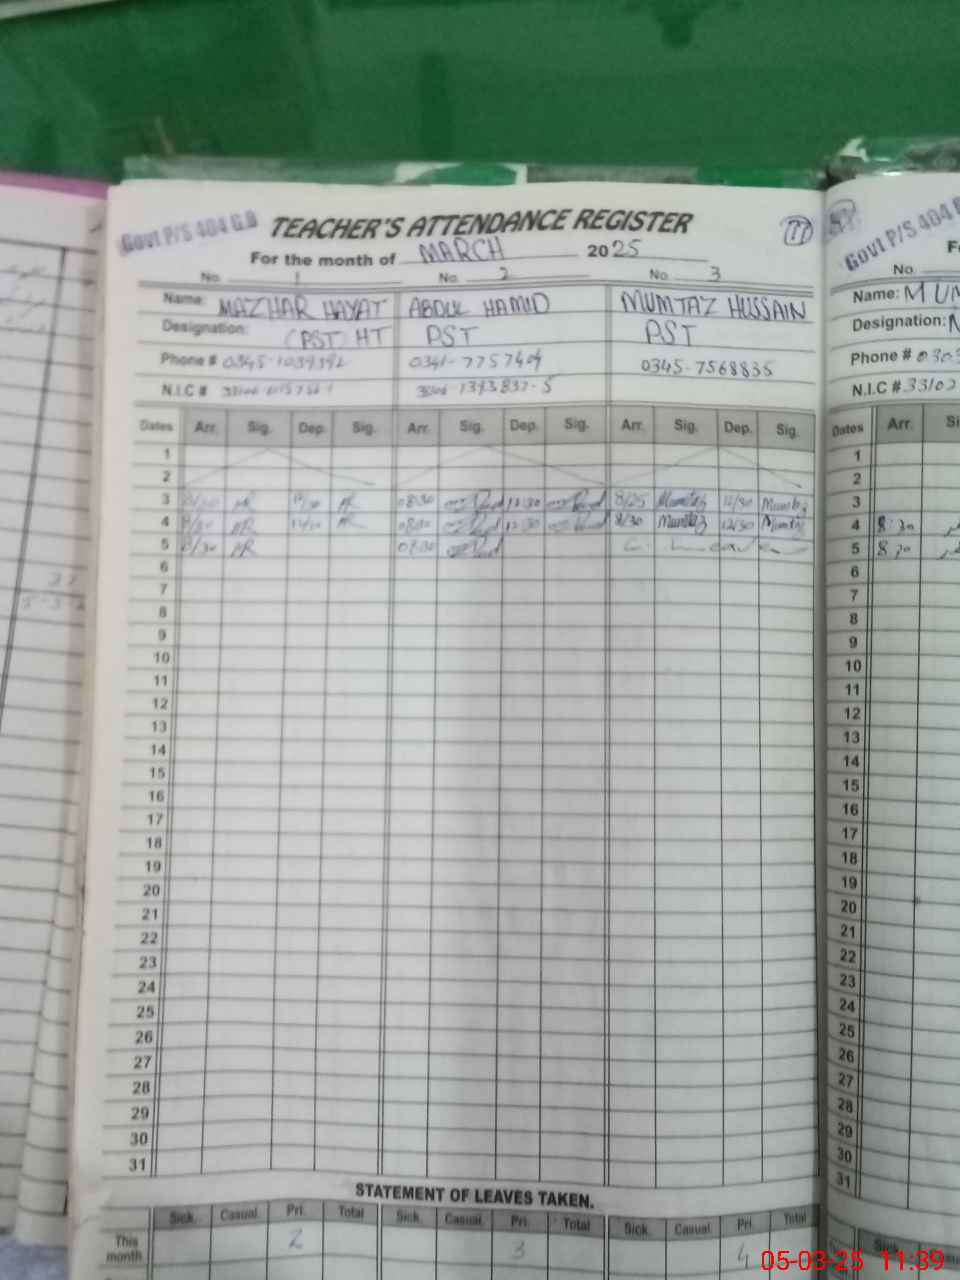 Govt P/S 404 G.B TEACHER'S ATTENDANCE REGISTER 77
For the month of MARCH 2025
No. 1 No. 2 No. 3
Name: MAZHAR HAYAT ABDUL HAMID MUMTAZ HUSSAIN
Designation: (PST) HT PST PST
Phone # 0341-7757404 0345-7568835
N.I.C #
Dates Arr. Sig. Dep. Sig. Arr. Sig. Dep. Sig. Arr. Sig. Dep. Sig.
1
2
3 08:30 12:30 8/25 Mumtaz 12/30 Mumtaz
4 8/30 12:30 8/30 Mumtaz 12/30 Mumtaz
5 8/30 08:30 C. Leave
6
7
8
9
10
11
12
13
14
15
16
17
18
19
20
21
22
23
24
25
26
27
28
29
30
31
STATEMENT OF LEAVES TAKEN.
Sick. Casual. Pri. Total Sick. Casual. Pri. Total Sick. Casual. Pri. Total
This month 2 3 4
Govt P/S 404
No
Name: MUM
Designation:
Phone # 0303
N.I.C # 33102
Dates Arr.
1
2
3
4 8:30
5 8:30
6
7
8
9
10
11
12
13
14
15
16
17
18
19
20
21
22
23
24
25
26
27
28
29
30
31
Sick.
05-03-25 11:39